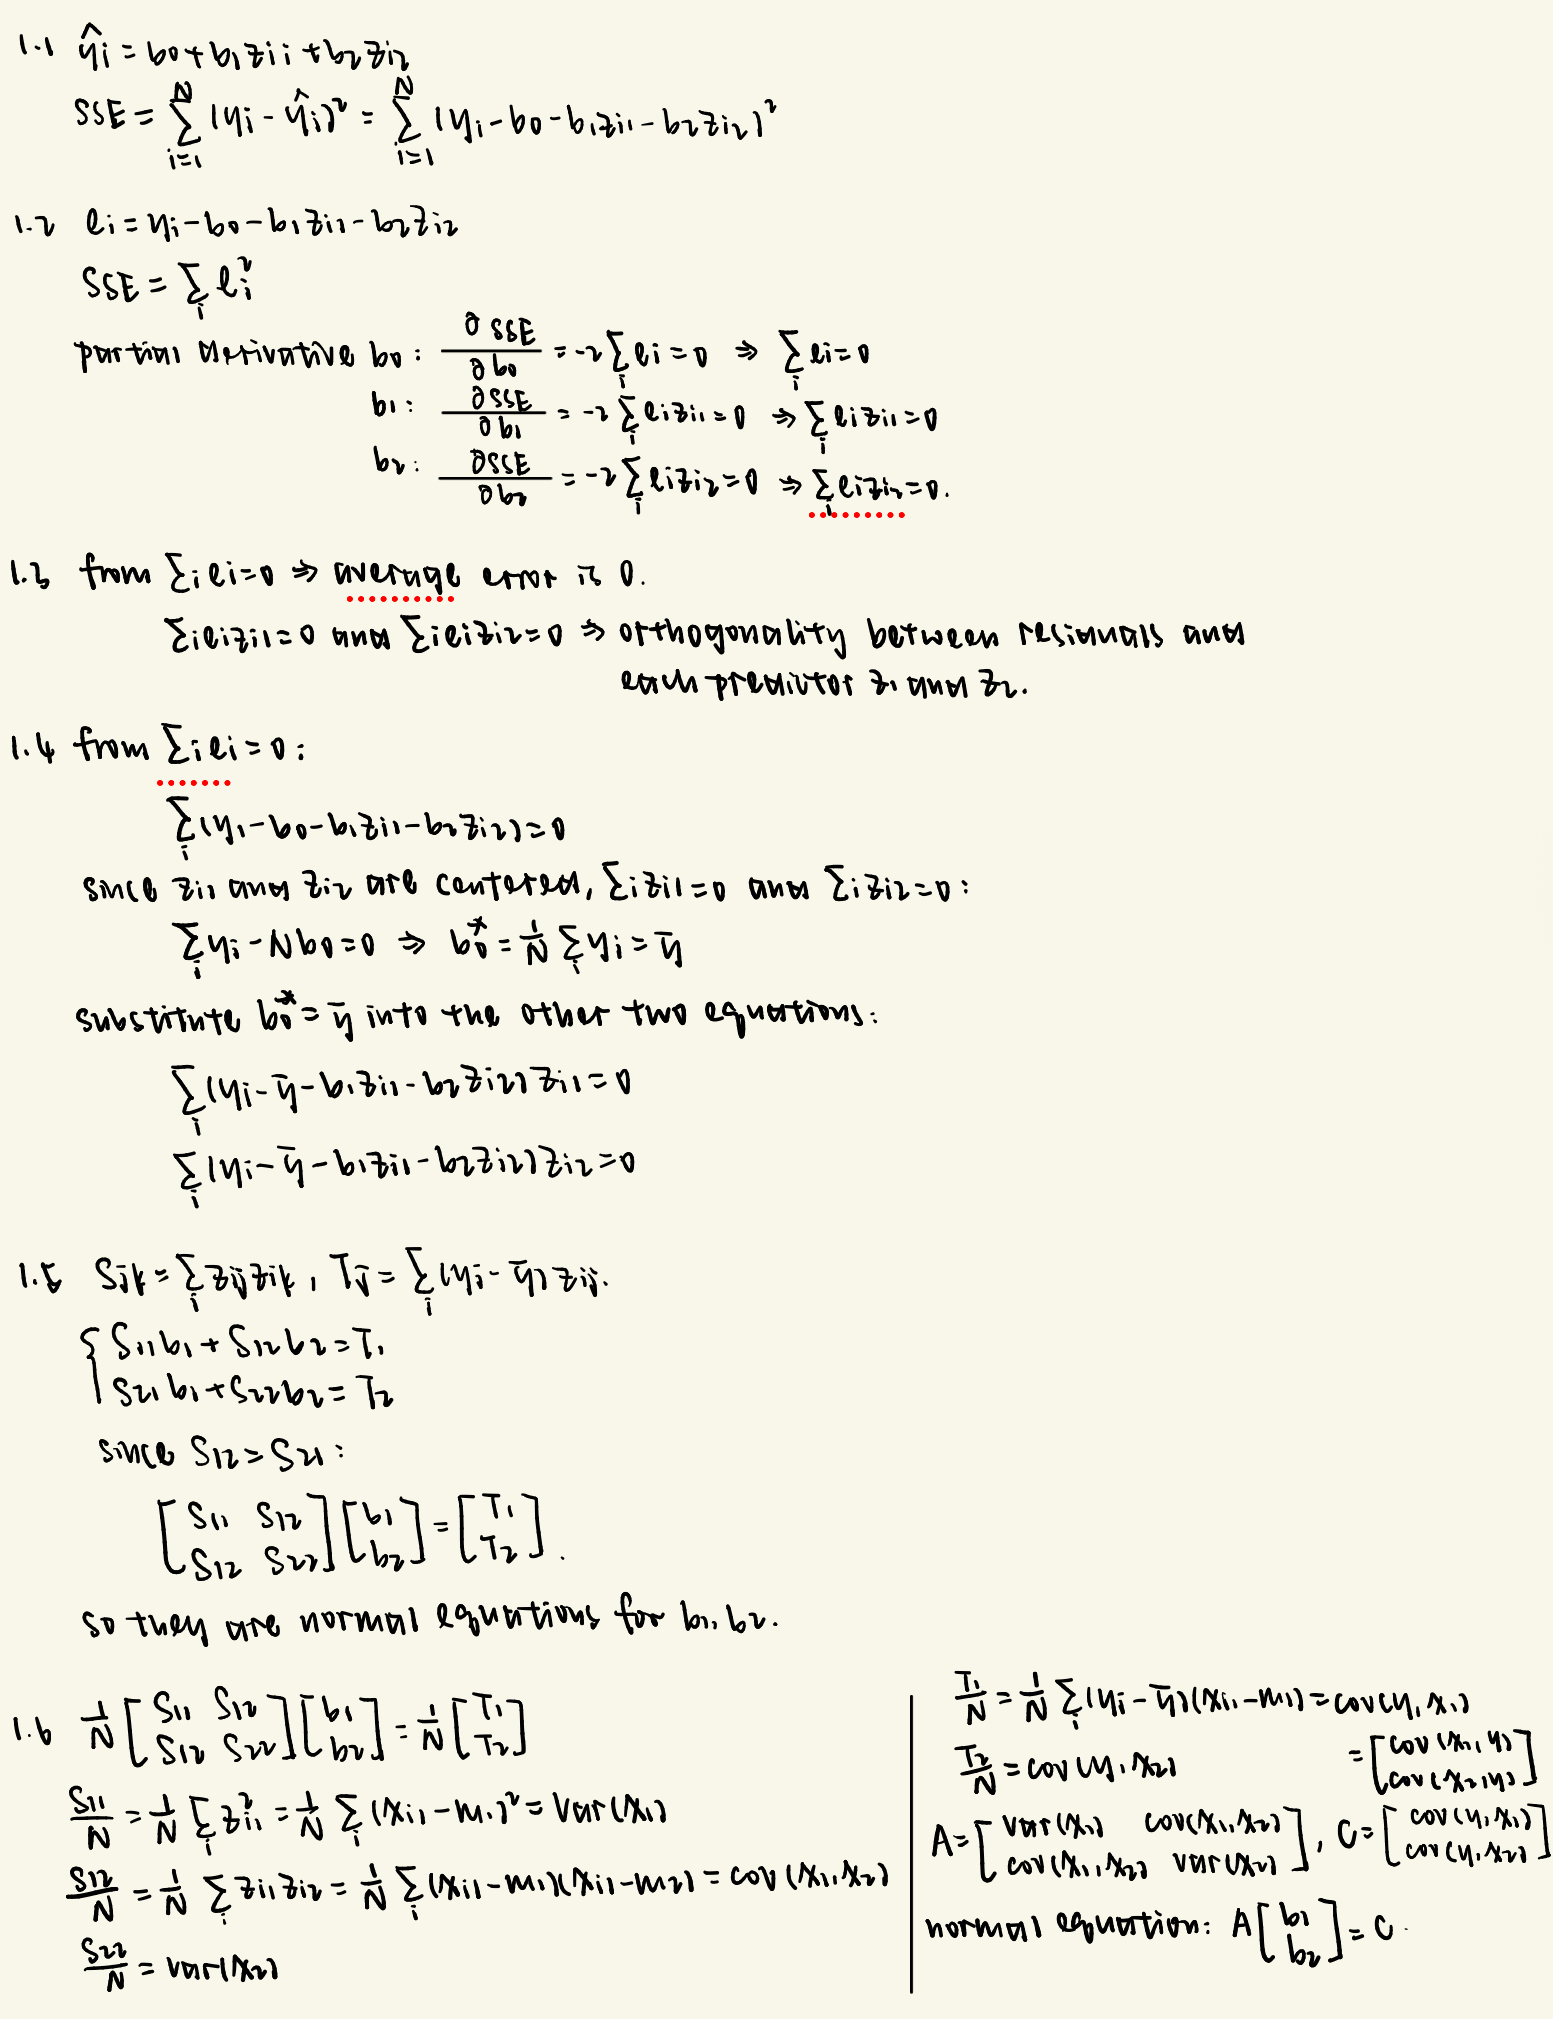 1.1 ŷi = b0 + b1zii + b2zi2
SSE = Σ_{i=1}^{N} (yi - ŷi)² = Σ_{i=1}^{N} (yi - b0 - b1zi1 - b2zi2)²
1.2 ei = yi - b0 - b1zi1 - b2zi2
SSE = Σ_i ei²
partial derivative b0: ∂SSE/∂b0 = -2 Σ_i ei = 0 ⇒ Σ_i ei = 0
b1: ∂SSE/∂b1 = -2 Σ_i eizi1 = 0 ⇒ Σ_i eizi1 = 0
b2: ∂SSE/∂b2 = -2 Σ_i eizi2 = 0 ⇒ Σ_i eizi2 = 0.
1.3 from Σi ei = 0 ⇒ average error is 0.
Σi eizi1 = 0 and Σi eizi2 = 0 ⇒ orthogonality between residuals and
each predictor z1 and z2.
1.4 from Σi ei = 0:
Σ_i (yi - b0 - b1zi1 - b2zi2) = 0
since zi1 and zi2 are centered, Σi zi1 = 0 and Σi zi2 = 0:
Σ_i yi - Nb0 = 0 ⇒ b0* = 1/N Σ_i yi = ȳ
substitute b0* = ȳ into the other two equations:
Σ_i (yi - ȳ - b1zi1 - b2zi2) zi1 = 0
Σ_i (yi - ȳ - b1zi1 - b2zi2) zi2 = 0
1.5 Sjk = Σ_i zijzik, Tj = Σ_i (yi - ȳ) zij.
{ S11b1 + S12b2 = T1
S21b1 + S22b2 = T2
since S12 = S21:
[S11 S12; S12 S22] [b1; b2] = [T1; T2].
so they are normal equations for b1, b2.
1.6 1/N [S11 S12; S12 S22] [b1; b2] = 1/N [T1; T2]
S11/N = 1/N Σ_i zi1² = 1/N Σ_i (xi1 - m1)² = Var(x1)
S12/N = 1/N Σ_i zi1zi2 = 1/N Σ_i (xi1 - m1)(xi1 - m2) = cov(x1, x2)
S22/N = Var(x2)
T1/N = 1/N Σ_i (yi - ȳ)(xi1 - m1) = cov(y, x1)
T2/N = cov(y, x2) = [cov(x1, y); cov(x2, y)]
A = [Var(x1) cov(x1, x2); cov(x1, x2) Var(x2)], C = [cov(y, x1); cov(y, x2)]
normal equation: A [b1; b2] = C.